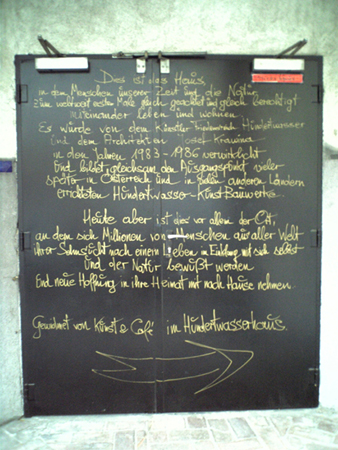 Dies ist das Haus,
in dem Menschen unserer Zeit und die Natur
zum ersten Male gleich geachtet und gleich berechtigt
miteinander leben und wohnen
Es wurde von dem Künstler Hundertwasser
und dem Architekten Josef Krawina
in den Jahren 1983-1986 verwirklicht
und bildet gleichsam den Ausgangspunkt vieler
später in Österreich und in anderen Ländern
errichteten Hundertwasser-Kunst Bauwerke.
Heute aber ist dies vor allem der Ort,
an dem sich Millionen von Menschen aus aller Welt
ihrer Sehnsucht nach einem Leben in Einklang mit sich selbst
und der Natur bewußt werden
Und neue Hoffnung in ihre Heimat mit nach Hause nehmen.
Gewidmet von Kunst & Café im Hundertwasserhaus.